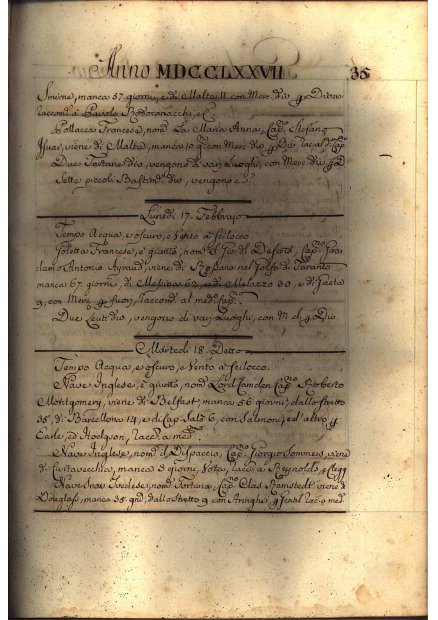 Anno MDCCLXXVII 35
Smirne, manca 37 giorni, e di Malta 11 con Merc. dio
raccom. a Pavolo Rodocanacchi, e C.
Pollacca Francese, nom. La Maria Anna, Cap.no Stefano
viene di Malta, manca 10 g.ni con Merc. dio
Due Tartane dio, vengono di varj Luoghi, con Merc. dio
Sette piccoli Bastim. dio, vengono
Lunedì 17. Febbrajo
Tempo Acqua, e oscuro, e Vento a scilocco.
Poletta Francese, è giunta, nom. S. Gio. del Deserto, Cap.no Giro-
lamo Antonio Ayraud, viene di nel Golfo di Taranto
manca 67 giorni, di Messina 62, e di Melazzo 30, e di Gaeta
9, con Merc. raccond. al med.o Cap.no
Due Leuti dio, vengono di varj Luoghi, con M. d. Dio
Martedì 18. Detto
Tempo Acqua, e oscuro, e Vento a scilocco.
Nave Inglese, è giunta, nom. Lord Camden Cap.no Roberto
Montgomeri, viene di Belfast, manca 56 giorni, dallo stretto
35, di Barcellona 14, e di Cap. Salò 6, con Salmoni, ed altro
Earle, ed Hodgson, racc. a med.
Nave Inglese, nom. il Dispaccio, Cap.no Giorgio Sommers, viene
di Civitavecchia, manca 3 giorni, Vota, racc. a Reynolds,
Nave Inglese, nom. Fortuna, Cap.no Clas Ramstedt viene di
Douglass, manca 35 gni, dallo stretto 9 con Aringhe, Gentil rac. a med.